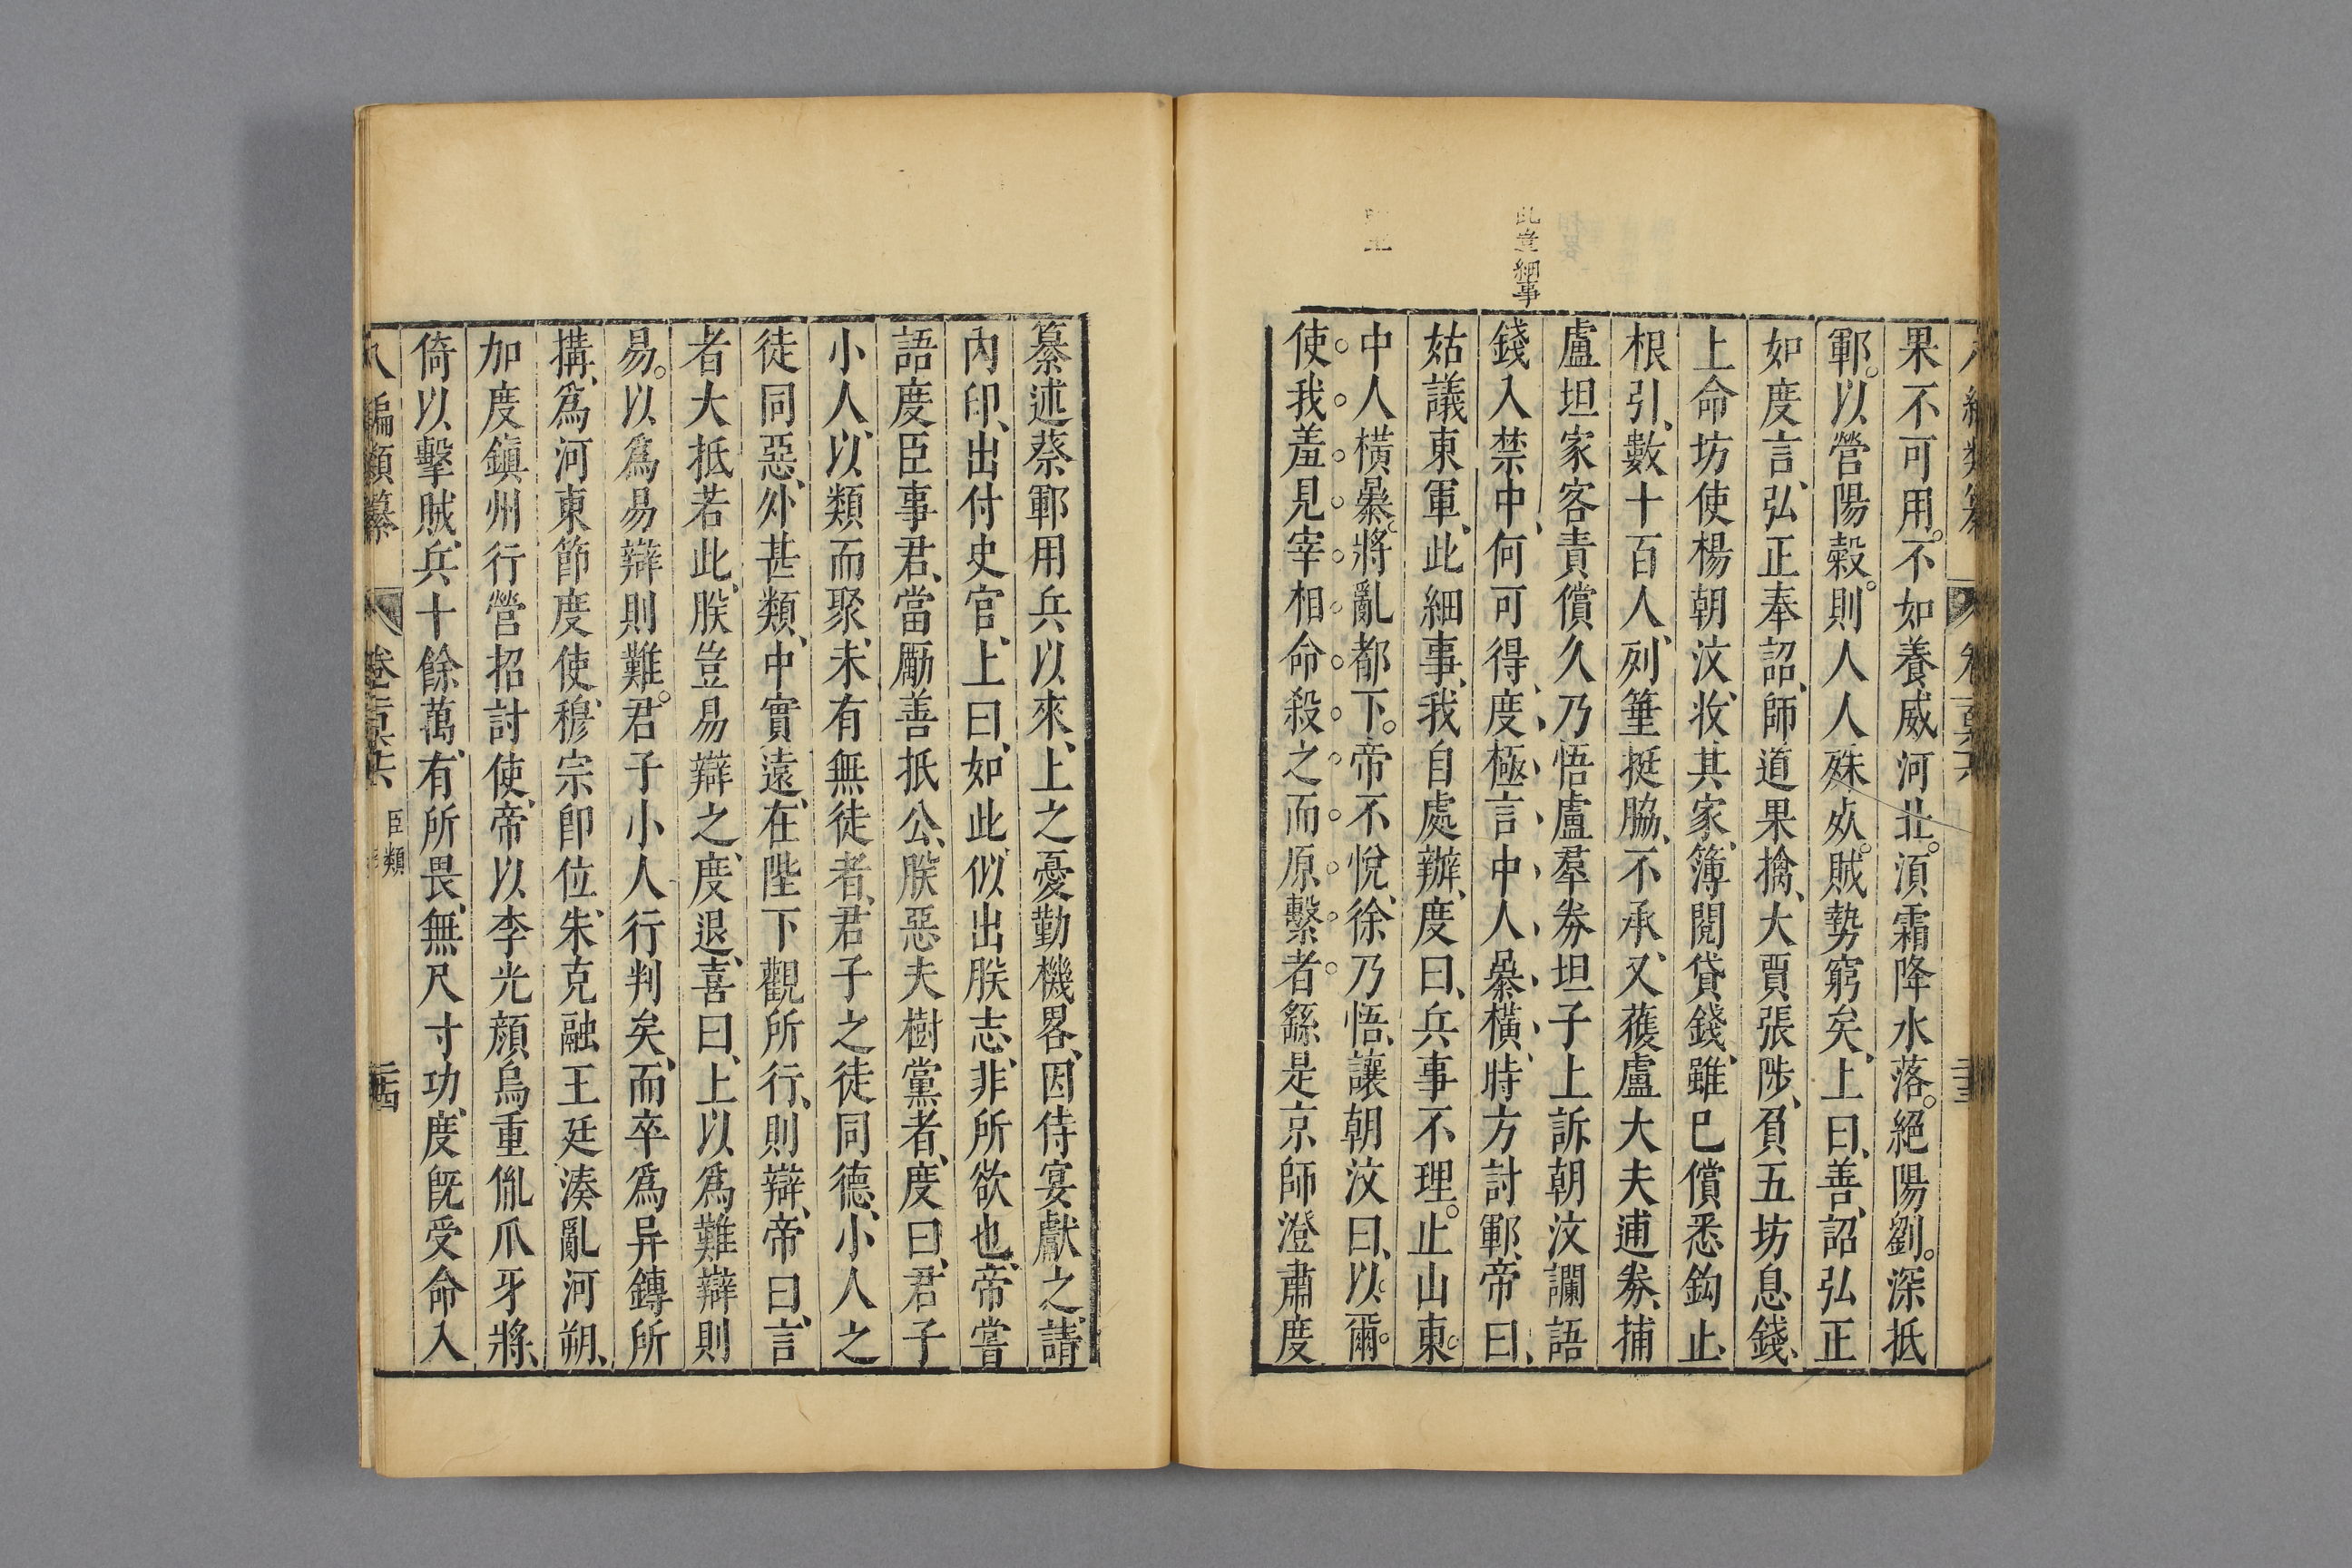 此豈細事
果不可用。不如養威河北。須霜降水落。絕陽劉。深抵
鄆。以營陽穀。則人人殊死。賊勢窮矣、上曰、善、詔弘正
如度言、弘正奉詔、師道果擒、大賈張陟、負五坊息錢、
上命坊使楊朝汶、收其家、簿閱貸錢、雖已償悉鈎止、
根引、數十百人、列箠挺脇、不承、又獲盧大夫逋劵、捕
盧坦家客責償久乃悟盧羣劵坦子上訴朝汶讕語
錢入禁中、何可得、度極言中人暴橫、時方討鄆、帝曰、
姑議東軍、此細事、我自處辦、度曰、兵事不理。止山東。
中人橫暴。將亂都下。帝不悅、徐乃悟、讓朝汶曰、以爾。
使我羞見宰相命殺之而原繫者繇是京師澄肅度
纂述蔡鄆用兵以來、上之憂勤機畧、因侍宴獻之、請
內印、出付史官、上曰、如此、似出朕志、非所欲也、帝嘗
語度臣事君、當勵善抵公、朕惡夫樹黨者、度曰、君子
小人、以類而聚、未有無徒者、君子之徒同德、小人之
徒同惡、外甚類、中實遠、在陛下觀所行、則辯、帝曰、言
者大抵若此、朕豈易辯之、度退、喜曰、上以爲難辯則
易。以爲易辯則難。君子小人行判矣、而卒爲异鎛所
搆、爲河東節度使、穆宗卽位、朱克融王廷湊亂河朔、
加度鎭州行營招討使、帝以李光顏烏重胤爪牙將、
倚以擊賊、兵十餘萬、有所畏、無尺寸功、度旣受命入
八編類纂 卷二百六 臣類 二十四